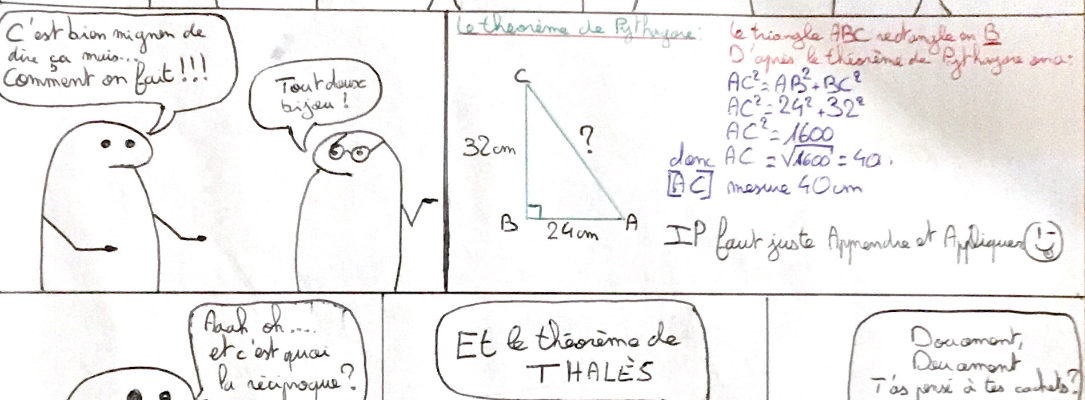 C'est bien mignon de
dire ça mais...
Comment on fait !!!
Tout doux
bijou !
Le théorème de Pythagore:
C
32cm
?
B
24cm
A
Le triangle ABC rectangle en B
D'après le théorème de Pythagore on a:
AC² = AB² + BC²
AC² = 24² + 32²
AC² = 1600
donc AC = √1600 = 40.
[AC] mesure 40cm
Il faut juste Apprendre et Appliquer
Aaah oh....
et c'est quoi
la réciproque ?
Et le théorème de
THALÈS
Doucement,
Doucement
T'as pensé à tes cachets ?